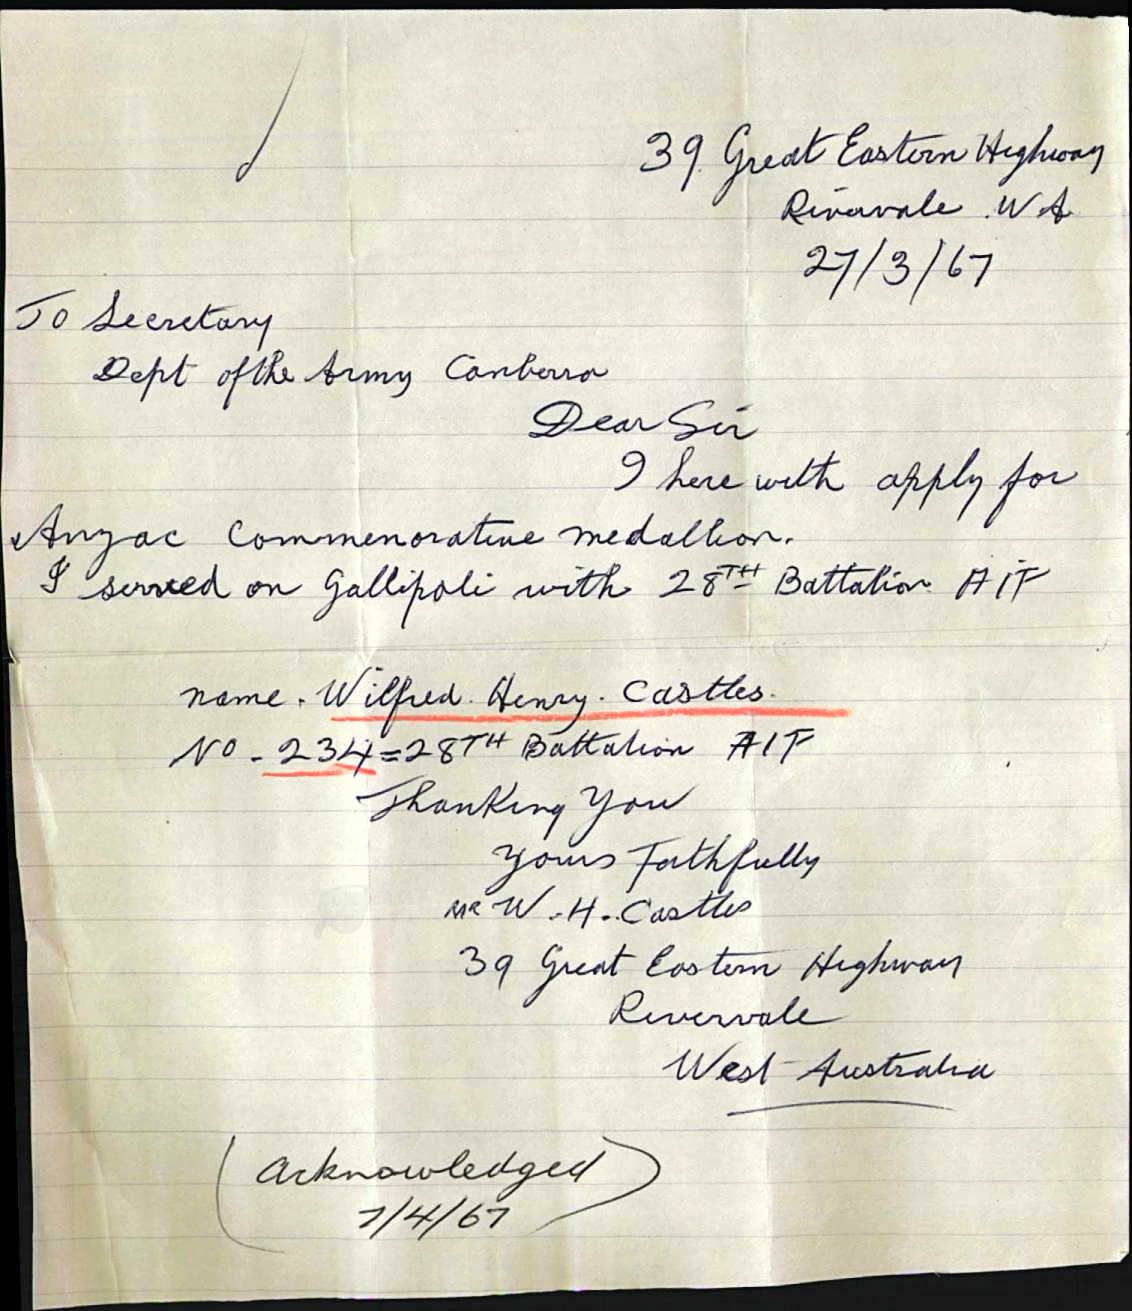 39 Great Eastern Highway
Rivervale . W A
27/3/67
To Secretary
Dept of the Army Canberra
Dear Sir
I here with apply for
Anzac Commenorative medallion.
I served on Gallipoli with 28TH Battalion A I F
name . Wilfred . Henry . Castles .
No - 234 = 28TH Battalion A I F
Thanking You
Yours Faithfully
MR W . H . Castles
39 Great Eastern Highway
Rivervale
West Australia
(Acknowledged
7/4/67)